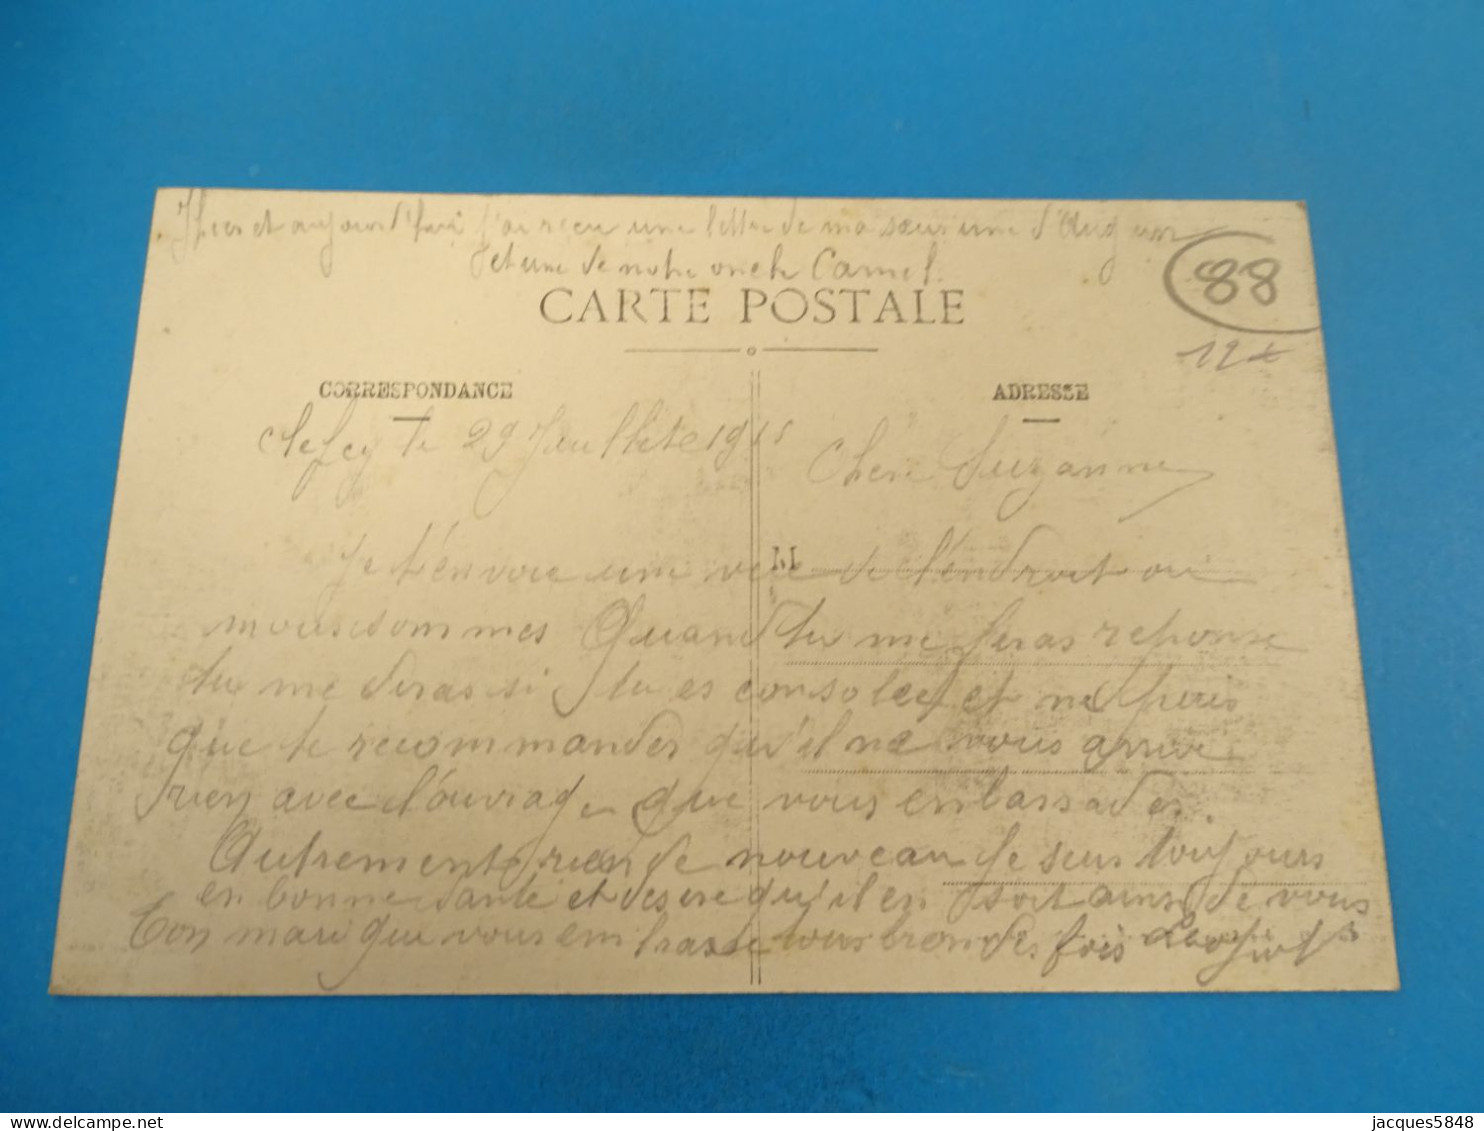 Hier et aujourd'hui j'ai recu une lettre de ma sœur une d'
et une de notre oncle Camel.
CARTE POSTALE
88
12
CORRESPONDANCE
ADRESSE
le 29 Juillete 1915
Chere Suzanne
M
Je t'envoie une vue de l'endroit ou
nous sommes Quand tu me feras reponse
tu me diras si tu es consolée et ne puis
que te recommander qu'il ne vous arrive
rien avec l'ouvrage que vous embassader.
Autrement rien de nouveau Je suis toujours
en bonne sante et desire qu'il en soit ainsi de vous
Ton mari que vous embrasse tous bien des fois
jacques5848